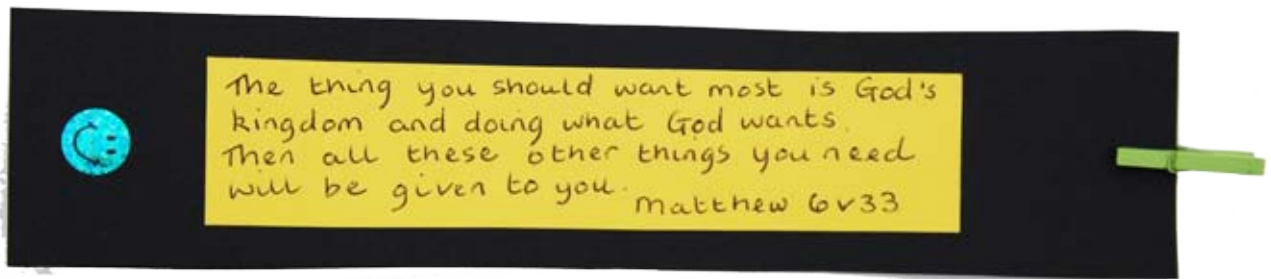 The thing you should want most is God's
kingdom and doing what God wants.
Then all these other things you need
will be given to you.
Matthew 6v33